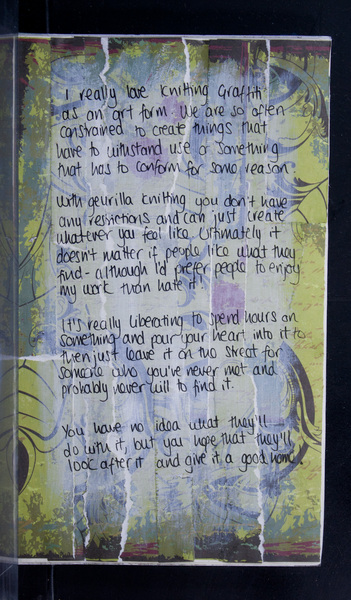 I really love knitting Graffiti
as an art form. We are so often
constrained to create things that
have to withstand use or something
that has to conform for some reason.
With geurilla knitting you don't have
any restrictions and can just create
whatever you feel like. Ultimately it
doesn't matter if people like what they
find - although I'd prefer people to enjoy
my work than hate it!
It's really liberating to spend hours on
something and pour your heart into it to
then just leave it on the street for
someone who you've never met and
probably never will to find it.
You have no idea what they'll
do with it, but you hope that they'll
look after it and give it a good home.